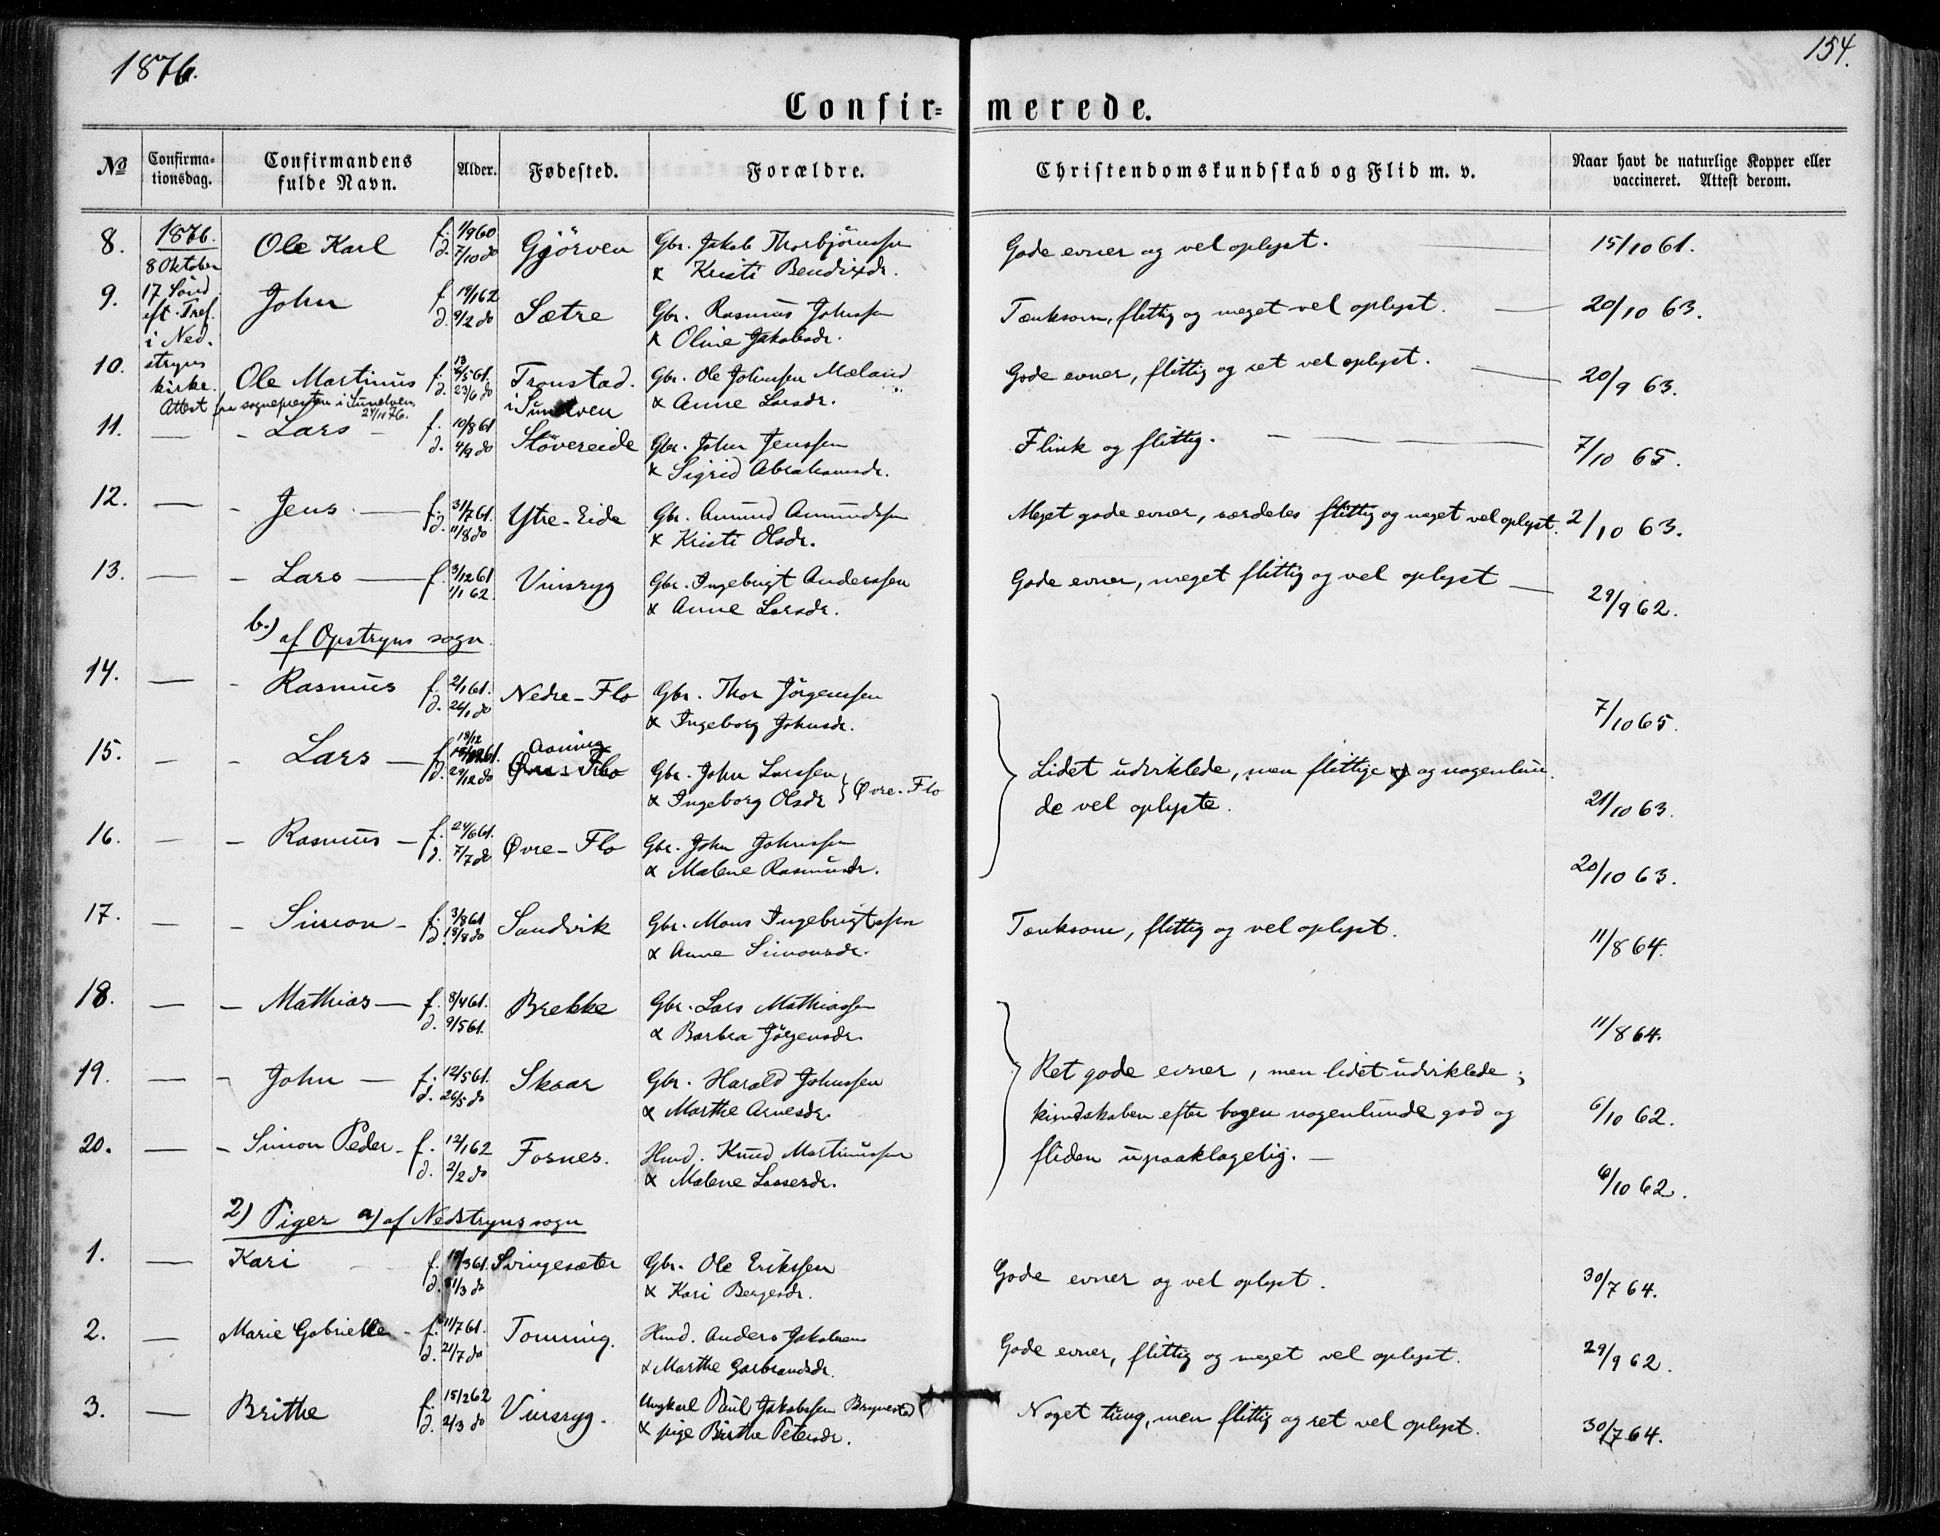 1876.
154.
Confir=
merede.
№
Confirma-
tionsdag.
Confirmandens
fulde Navn.
Alder.
Fødested.
Forældre.
Christendomskundskab og Flid m. v.
Naar havt de naturlige Kopper eller
vaccineret. Attest derom.
8. 1876. Ole Karl f. 1/9 60 Gjörven Gbr. Jakob Thorbjörnssen Gode evner og vel oplyst. 15/10 61.
8 Oktober d. 7/10 do & Kristi Bendixdr.
9. 17 Sönd. John f. 19/1 62 Sætre Gbr. Rasmus Johnssen Tænksom, flittig og meget vel oplyst. 20/10 63.
eft. Tref. d. 9/2 do & Oline Jakobsdr.
i Ned-
10. stryns Ole Martinus f. 61. Tronstad. Gbr. Ole Johnssen Mæland Gode evner, flittig og ret vel oplyst. 20/9 63.
kirke. d. 23/6 do i Sunelven & Anne Larsdr.
Attest fra sognepresten i Sunelven
24/10 76.
11. — - Lars - f. 10/8 61 Stövereide Gbr. John Jenssen Flink og flittig. 7/10 65.
d. 4/9 do & Sigrid Abrahamsdr.
12. — - Jens — f. 31/7 61. Ytre-Eide Gbr. Amund Amundssen Meget gode evner, særdeles flittig og meget vel oplyst. 2/10 63.
d. 11/8 do & Kristi Olsdr.
13. — - Lars — f. 3/12 61 Vinsryg Gbr. Ingebrigt Anderssen Gode evner, meget flittig og vel oplyst — 29/9 62.
1/1 62. & Anne Larsdr.
b.) af Opstryns sogn.
14. — - Rasmus f. 2/1 61. Nedre-Flo Gbr. Thor Jörgenssen 7/10 65.
d. 26/1 do & Ingeborg Johnsdr.
15. — - Lars — f. 18/12 61. Øvre-Flo Gbr. John Larssen } Øvre-Flo Lidet udviklede, men flittige og nogenlun-
d. 29/12 do & Ingeborg Olsdr. de vel oplyste. 21/10 63.
16. — - Rasmus — f. 24/6 61. Øvre-Flo Gbr. John Johnssen 20/10 63.
d. 7/7 do & Malene Rasmusdr.
17. — - Simon - f. 3/8 61 Sandvik Gbr. Mons Ingebrigtssen Tænksom, flittig og vel oplyst. 11/8 64.
d. 18/8 do & Anne Simonsdr.
18. — - Mathias — f. 8/4 61. Brekke Gbr. Lars Mathiassen 11/8 64.
d. 9/5 61. & Barbra Jörgensdr.
19. — - John — f. 12/5 61. Skaar Gbr. Harald Johnssen Ret gode evner, men lidet udviklede;
d. 26/5 do & Marthe Arnesdr. kundskaben efter bogen nogenlunde god og 6/10 62.
20. — - Simon Peder - f. 12/1 62 Fosnes. Hmd. Knud Martinussen fliden upaaklagelig. —
d. 2/2 do & Malene Lassesdr. 6/10 62.
2) Piger a) af Nedstryns sogn
1. — Kari f. 19/3 61. Svingesæter Gbr. Ole Erikssen Gode evner og vel oplyst. 30/7 64.
d. 31/3 do & Kari Bergesdr.
2. — Marie Gabrielle - f. 11/7 61. Tonning. Hmd. Anders Jakobssen Gode evner, flittig og meget vel oplyst. 29/9 62.
d. 21/7 do & Marthe Garbrandsdr.
3. — Brithe f. 15/2 62 Vinsryg. Ungkarl Paul Jakobssen Brynestad Noget tung, men flittig og ret vel oplyst. 30/7 64.
d. 2/3 do & pige Birthe Petersdr.